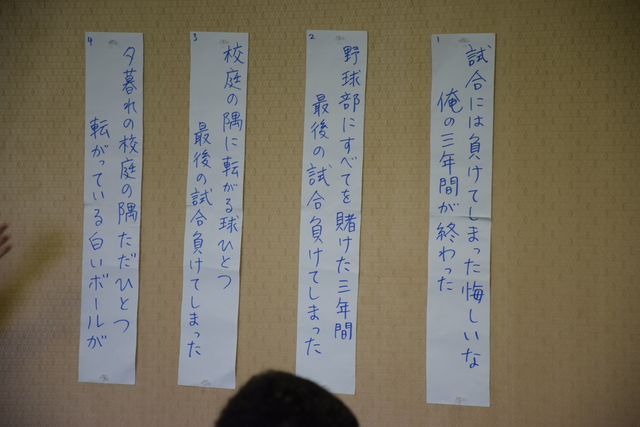 1
試合には負けてしまった悔しいな
俺の三年間が終わった
2
野球部にすべてを賭けた三年間
最後の試合負けてしまった
3
校庭の隅に転がる球ひとつ
最後の試合負けてしまった
4
夕暮れの校庭の隅ただひとつ
転がっている白いボールが